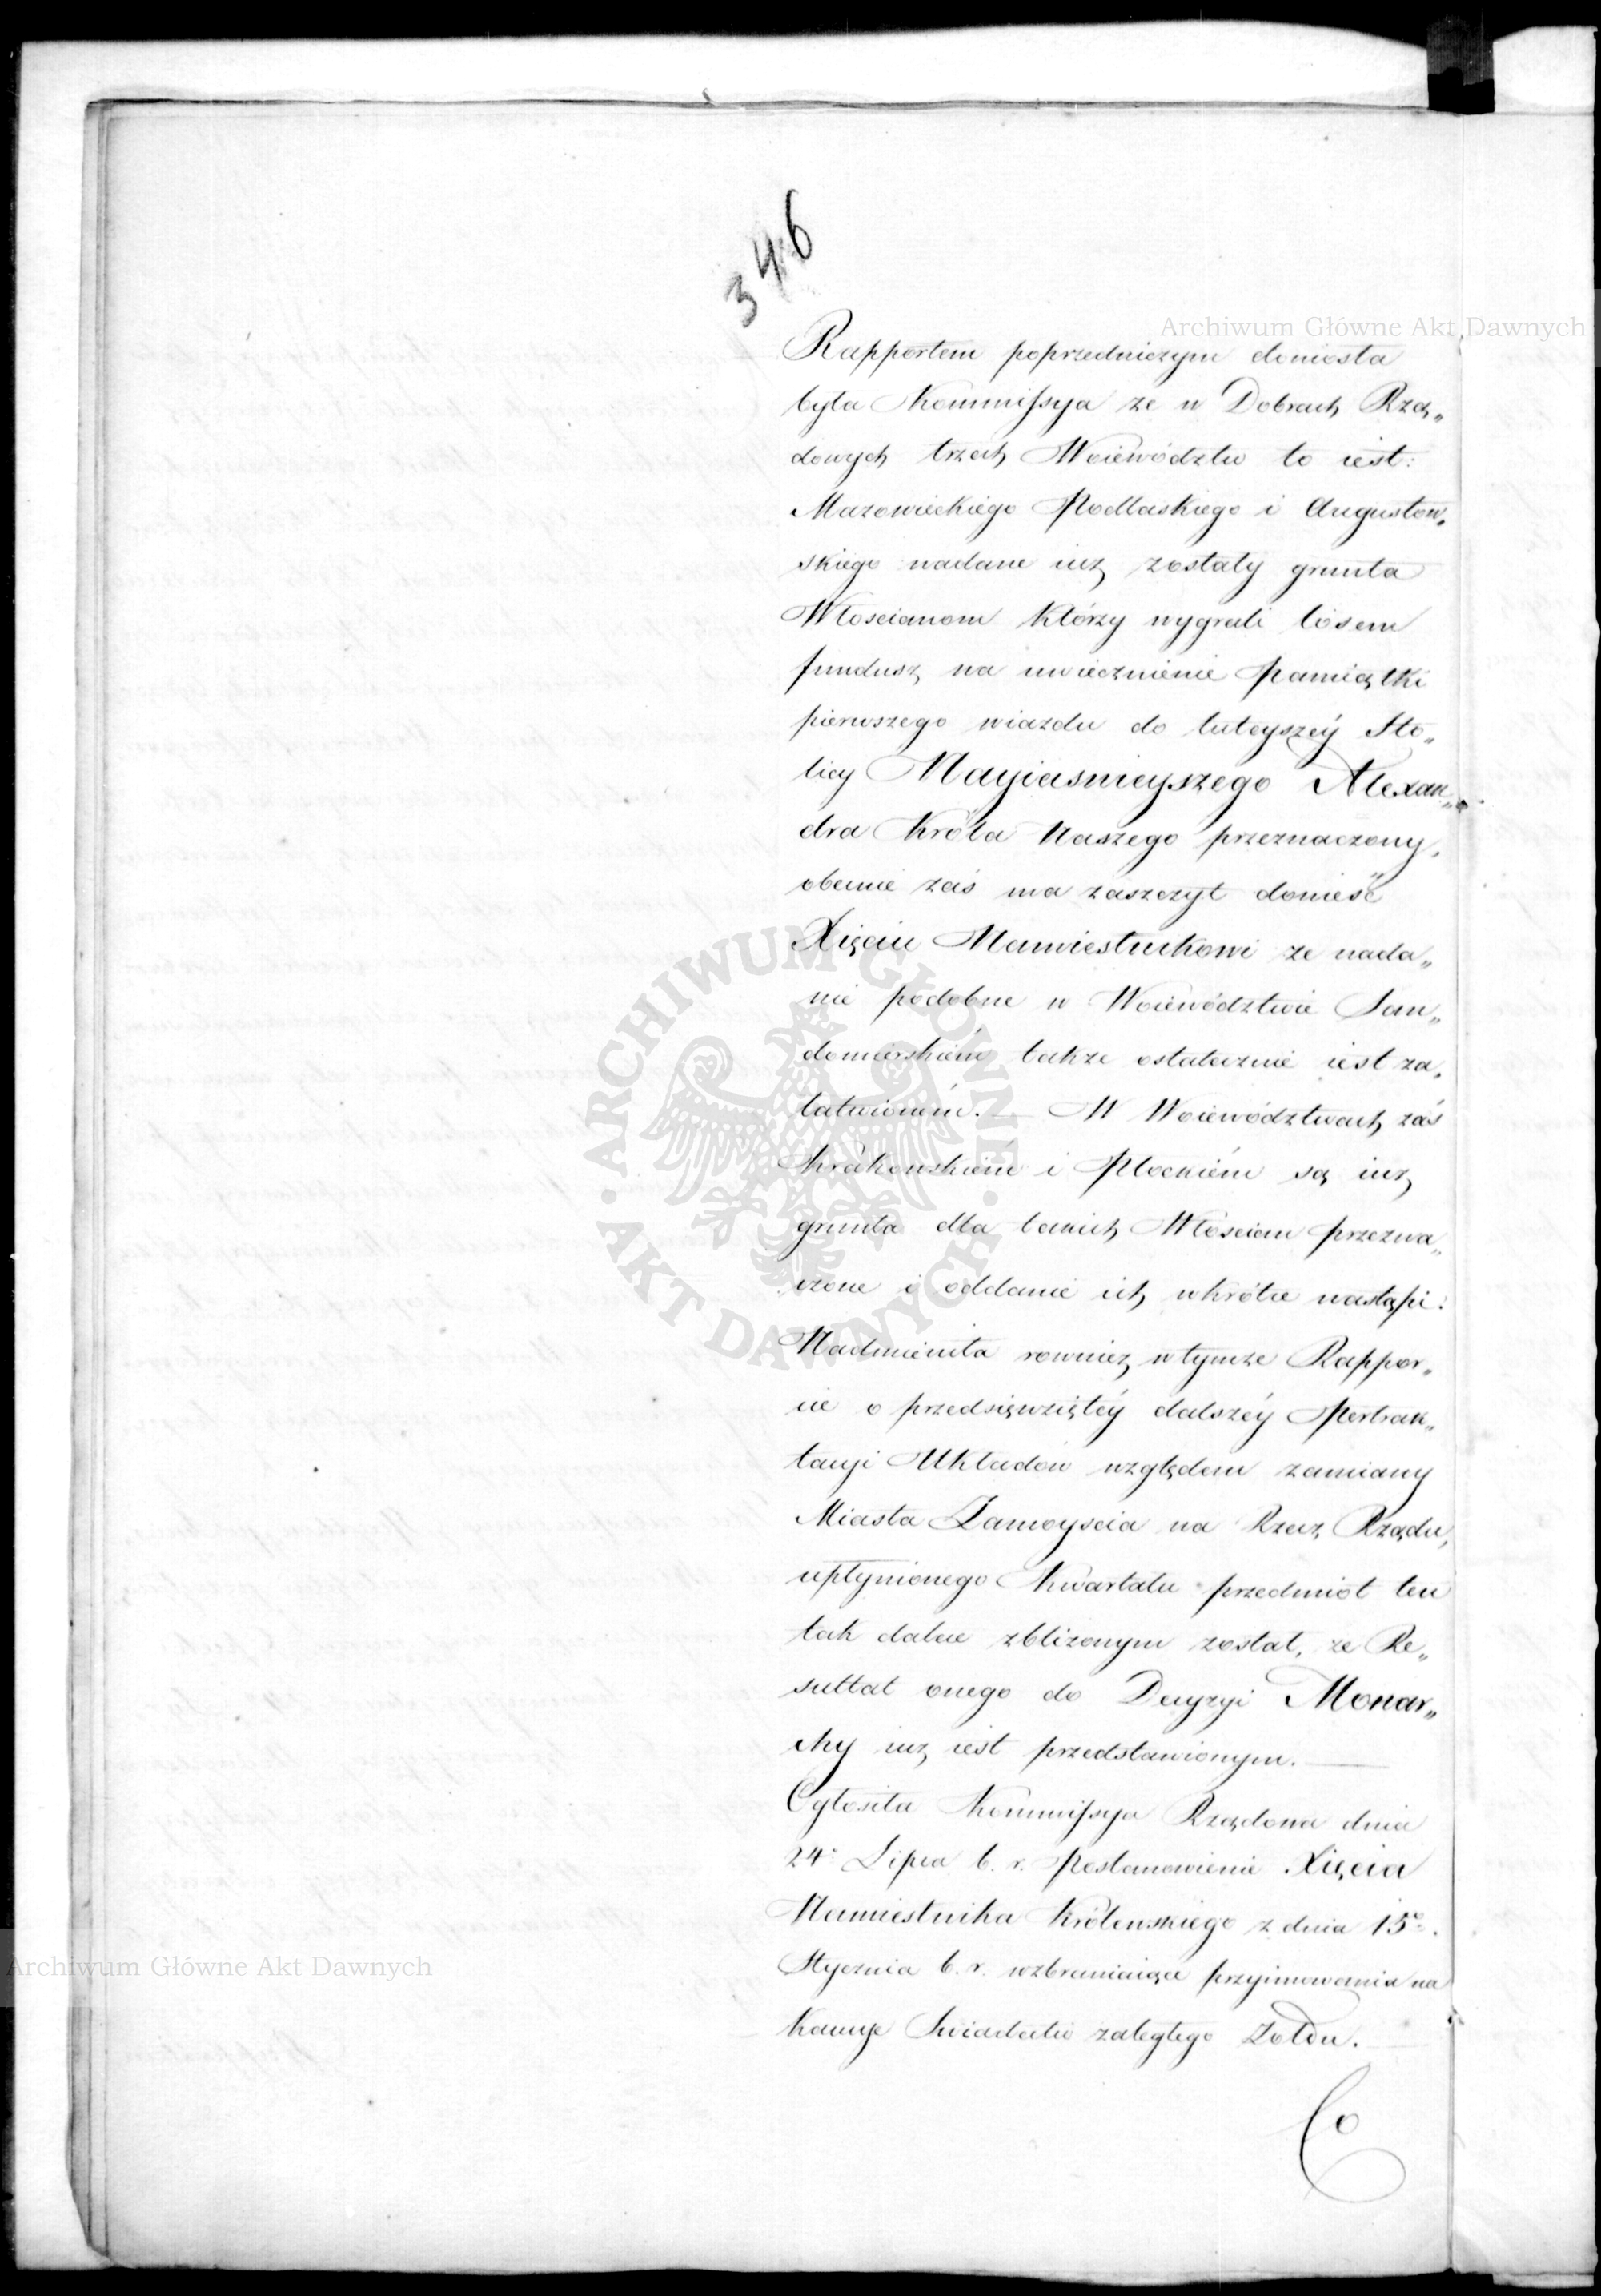 346
Archiwum Główne Akt Dawnych
Rapportem poprzedniczym doniosła
była Kommissya że w Dobrach Rzą„
dowych trzech Woiewództw to iest:
Mazowieckiego Podlaskiego i Augustow„
skiego nadane iuż zostały grunta
Włoscianom którzy wygrali losem
fundusz na uwiecznienie Pamiątki
pierwszego wiazdu do tuteyszéy Sto„
licy Nayiasnieyszego Alexan„
dra Króla Naszego przeznaczony,
obecnie zaś ma zaszczyt donieść
Xięciu Namiestnikowi że nada„
nie podobne w Woiewództwie San„
domierskiém także ostatecznie iest za„
łatwioném. — W Woiewództwach zaś
Krakowskiém i Płockiém są iuż
grunta dla takich Włościan przezna„
czone i oddanie ich wkrótce nastąpi.
Nadmieniła rownież w tymże Rappor„
cie o przedsięwziętéy dalszéy Pertrak„
tacyi Układów względem zamiany
Miasta Zamoyscia na Rzecz Rządu,
upłynionego Kwartału przedmiot ten
tak dalece zbliżonym został, że Re„
sultat onego do Decyzyi Monar„
chy iuż iest przedstawionym. —
Ogłosiła Kommissya Rządowa dnia
24º Lipca b. r. Postanowienie Xięcia
Namiestnika Królewskiego z dnia 15º
Stycznia b. r. wzbraniaiące przyimowania na
Kaucye Swiadectw zaległego Żołdu. —
Co
Archiwum Główne Akt Dawnych
ARCHIWUM GŁÓWNE · AKT DAWNYCH ·